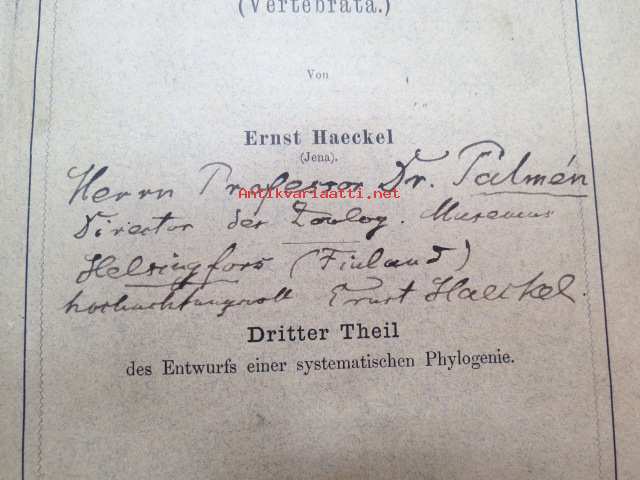 (Vertebrata.)
Von
Ernst Haeckel
(Jena).
Herrn Professor Dr. Palmén
Antikvariaatti.net
Director der Zoolog. Museums
Helsingfors (Finland)
hochachtungsvoll Ernst Haeckel.
Dritter Theil
des Entwurfs einer systematischen Phylogenie.